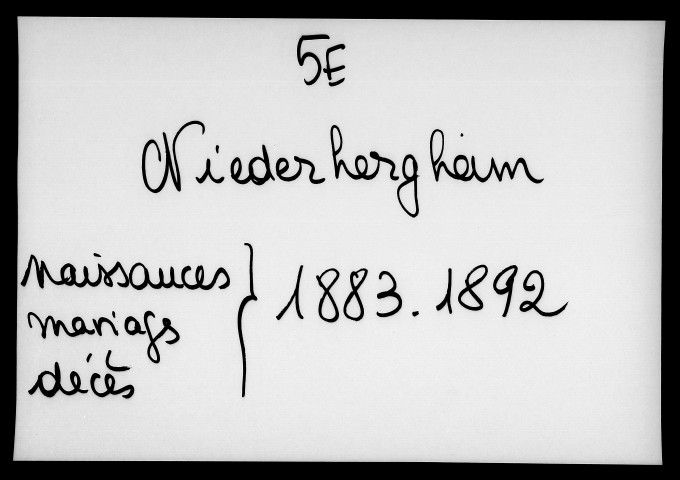 5E
Niederhergheim
naissances
mariages
décès
} 1883.1892